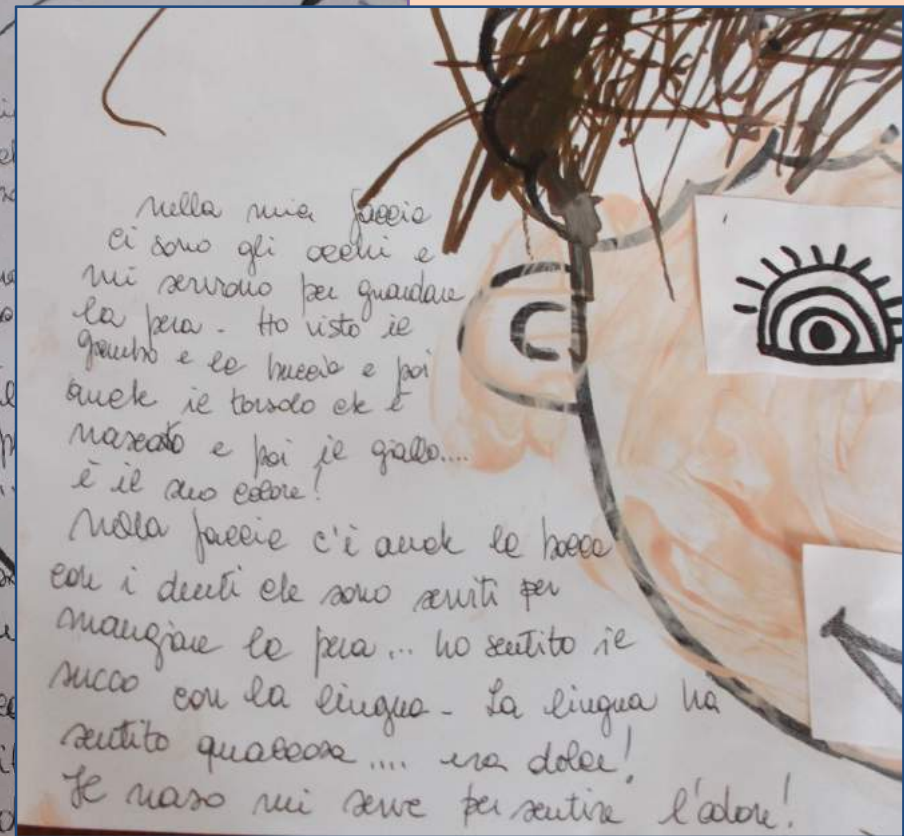 nella mia faccia
ci sono gli occhi e
mi servono per guardare
la pera. Ho visto il
gambo e la buccia e poi
anche il torsolo che è
nascosto e poi il giallo....
è il suo colore!
Nella faccia c'è anche la bocca
con i denti che sono serviti per
mangiare la pera... ho sentito il
succo con la lingua. La lingua ha
sentito qualcosa.... era dolce!
Il naso mi serve per sentire l'odore!